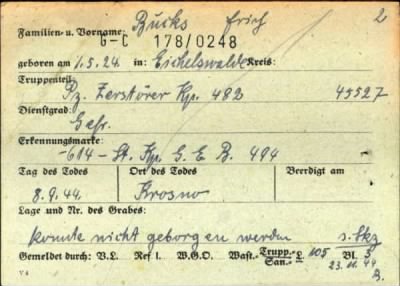 Familien- u. Vorname: Bucks Erich 2
G-C 178/0248
geboren am 1.5.24. in: Eichelswalde Kreis:
Truppenteil:
Pz. Zerstörer Kp. 482 45527
Dienstgrad:
Gefr.
Erkennungsmarke:
-614- St. Kp. G. E. B. 494
Tag des Todes Ort des Todes Beerdigt am
8.9.44. Krosno
Lage und Nr. des Grabes:
konnte nicht geborgen werden s. Skz
Gemeldet durch: V.L. Ref L. W.G.O. Wast. Trupp.-San.- L. 105 Bl. 5
23.11.44
V 6 B.